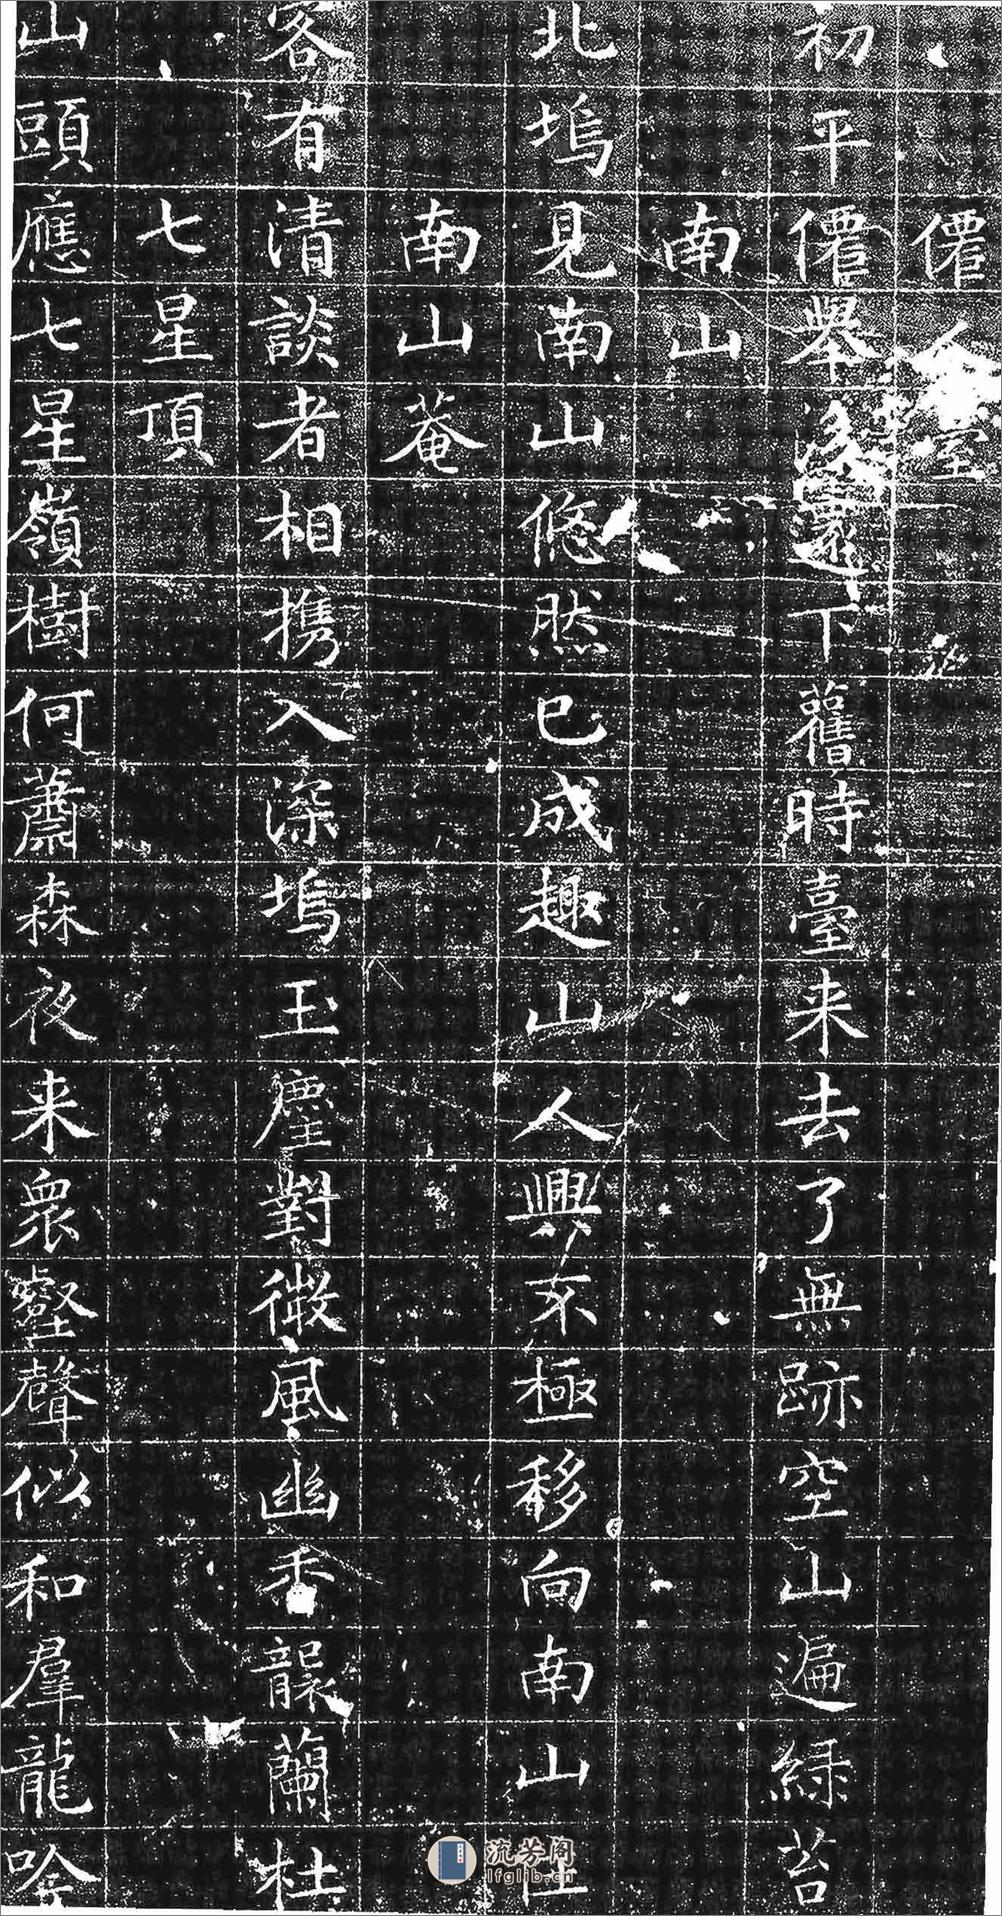 僊人室
初平僊舉後還下舊時臺来去了無跡空山遍緑苔
南山
北塢見南山悠然已成趣山人興不極移向南山住
南山菴
客有清談者相携入深塢玉麈對微風幽香襲蘭杜
七星頂
山頭應七星嶺樹何蕭森夜来衆壑聲似和羣龍吟
流芳阁
lfglib.cn